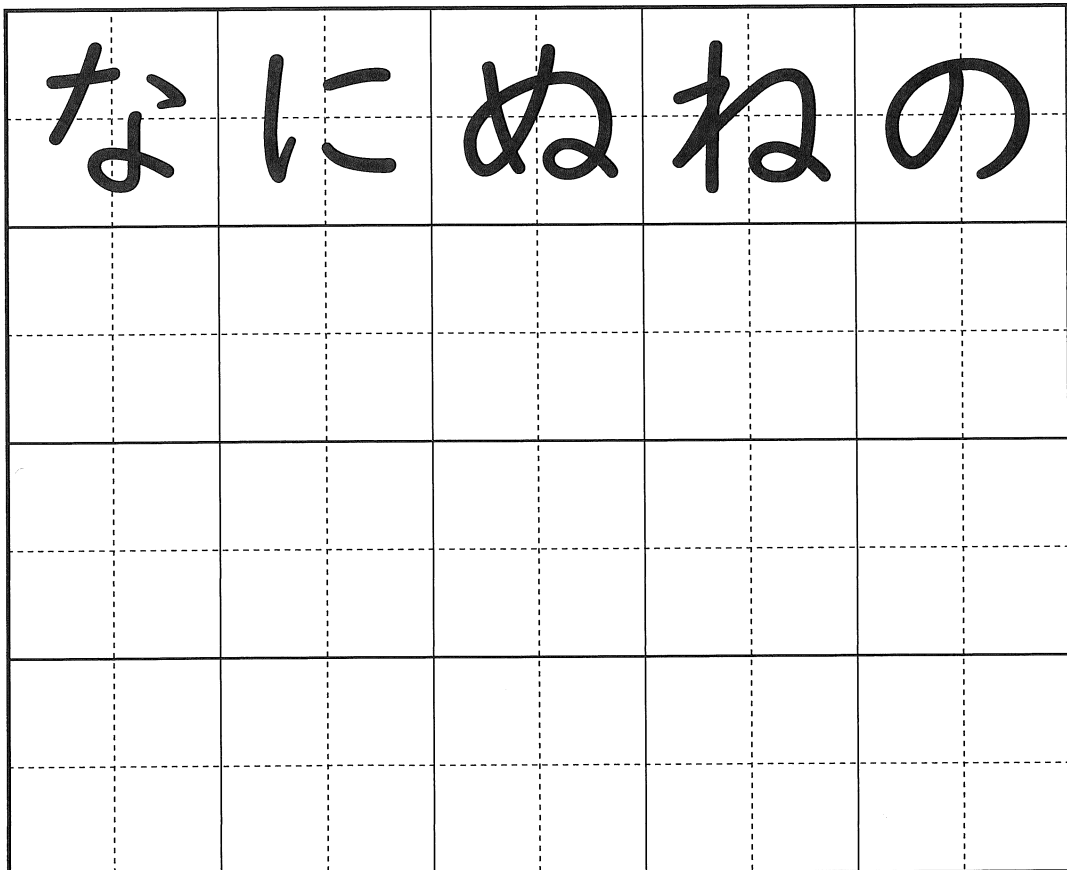 なにぬねの